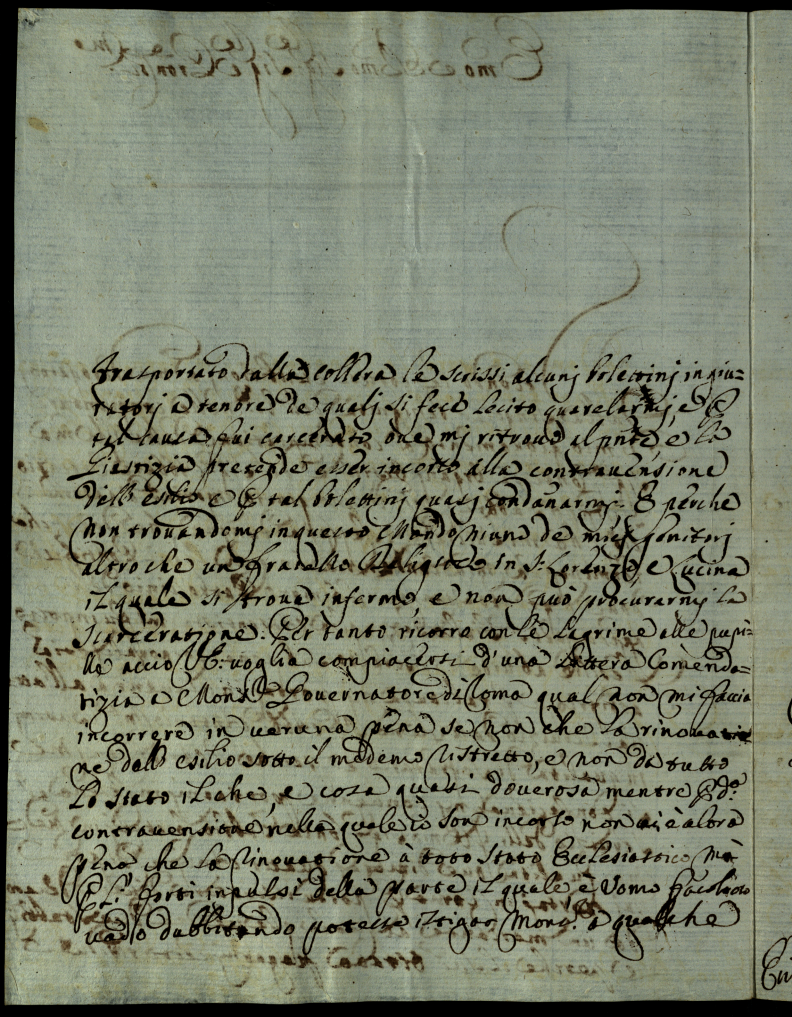 Trasportato dalla Collera le scrissi alcunj bolettinj ingiu=
riatorj a tenore de qualj si fece lecito querelarmj, e
tal causa fui carcerato, oue mj ritrouo al pnte, e la
Giustizia pretende esser incorso alla contrauensione
dell'esilio e tal bolettinj quasj condanarmj. E perche
non trouandomj in questo Mondo niuno de miej genitorj
altro che un fratello Religioso in S. Lorenzo, e Lucina
il quale si troua infermo, e non può procurarmj la
Scarceratione: Per tanto ricorro con le Lagrime alle pupil=
le acciò V: E: voglia compiacersi d'una Lettera Comenda=
tizia a Monsr Gouernatore di Roma qual non mi faccia
incorrere in ueruna pena se non che la rinouatio
ne dell esilio sotto il medemo ristretto, e non da tutto
Lo Stato il che, e cosa quasi douerosa mentre
contrauensione nella quale io son incorso non ui è altra
pena che la rinouatione à toto Stato Ecclesiastico, mà
forti inpulsi della parte il quale è Uomo facoltoso
uado dubbitando potesse istigar Monsr à qualche